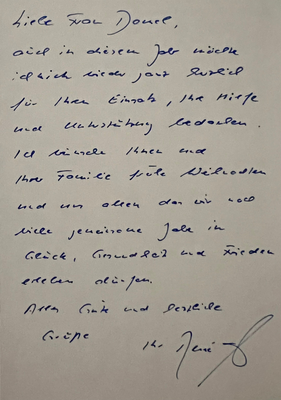 Liebe Frau
auch in diesem Jahr möchte
ich mich wieder ganz herzlich
für Ihren Einsatz, Ihre Hilfe
und Unterstützung bedanken.
Ich wünsche Ihnen und
Ihrer Familie frohe Weihnachten
und uns allen das wir noch
viele gemeinsame Jahre in
Glück, Gesundheit und Frieden
erleben dürfen.
Alles Gute und herzliche
Grüße Ihr